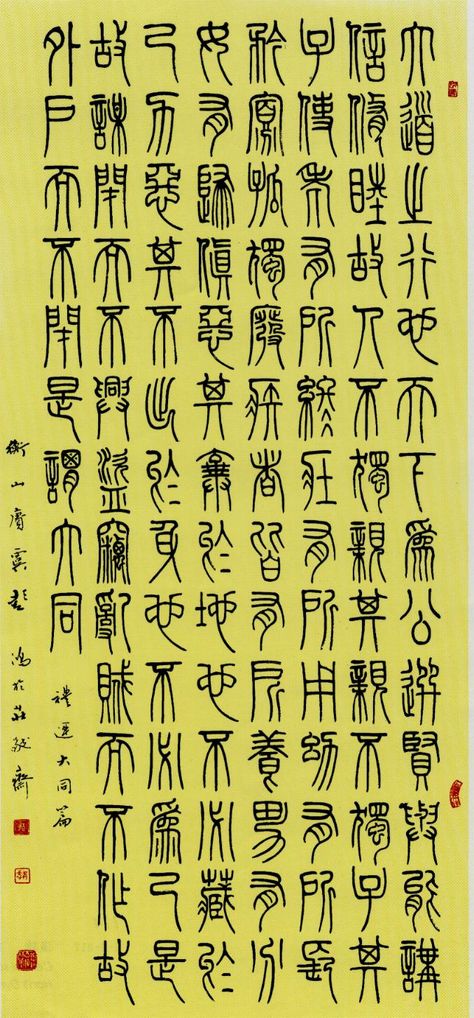 大道之行也天下為公選賢與能講
信修睦故人不獨親其親不獨子其
子使老有所終壯有所用幼有所長
矜寡孤獨廢疾者皆有所養男有分
女有歸貨惡其棄於地也不必藏於
己力惡其不出於身也不必為己是
故謀閉而不興盜竊亂賊而不作故
外戶而不閉是謂大同
禮運大同篇
衡山 鴻於莊敬齋